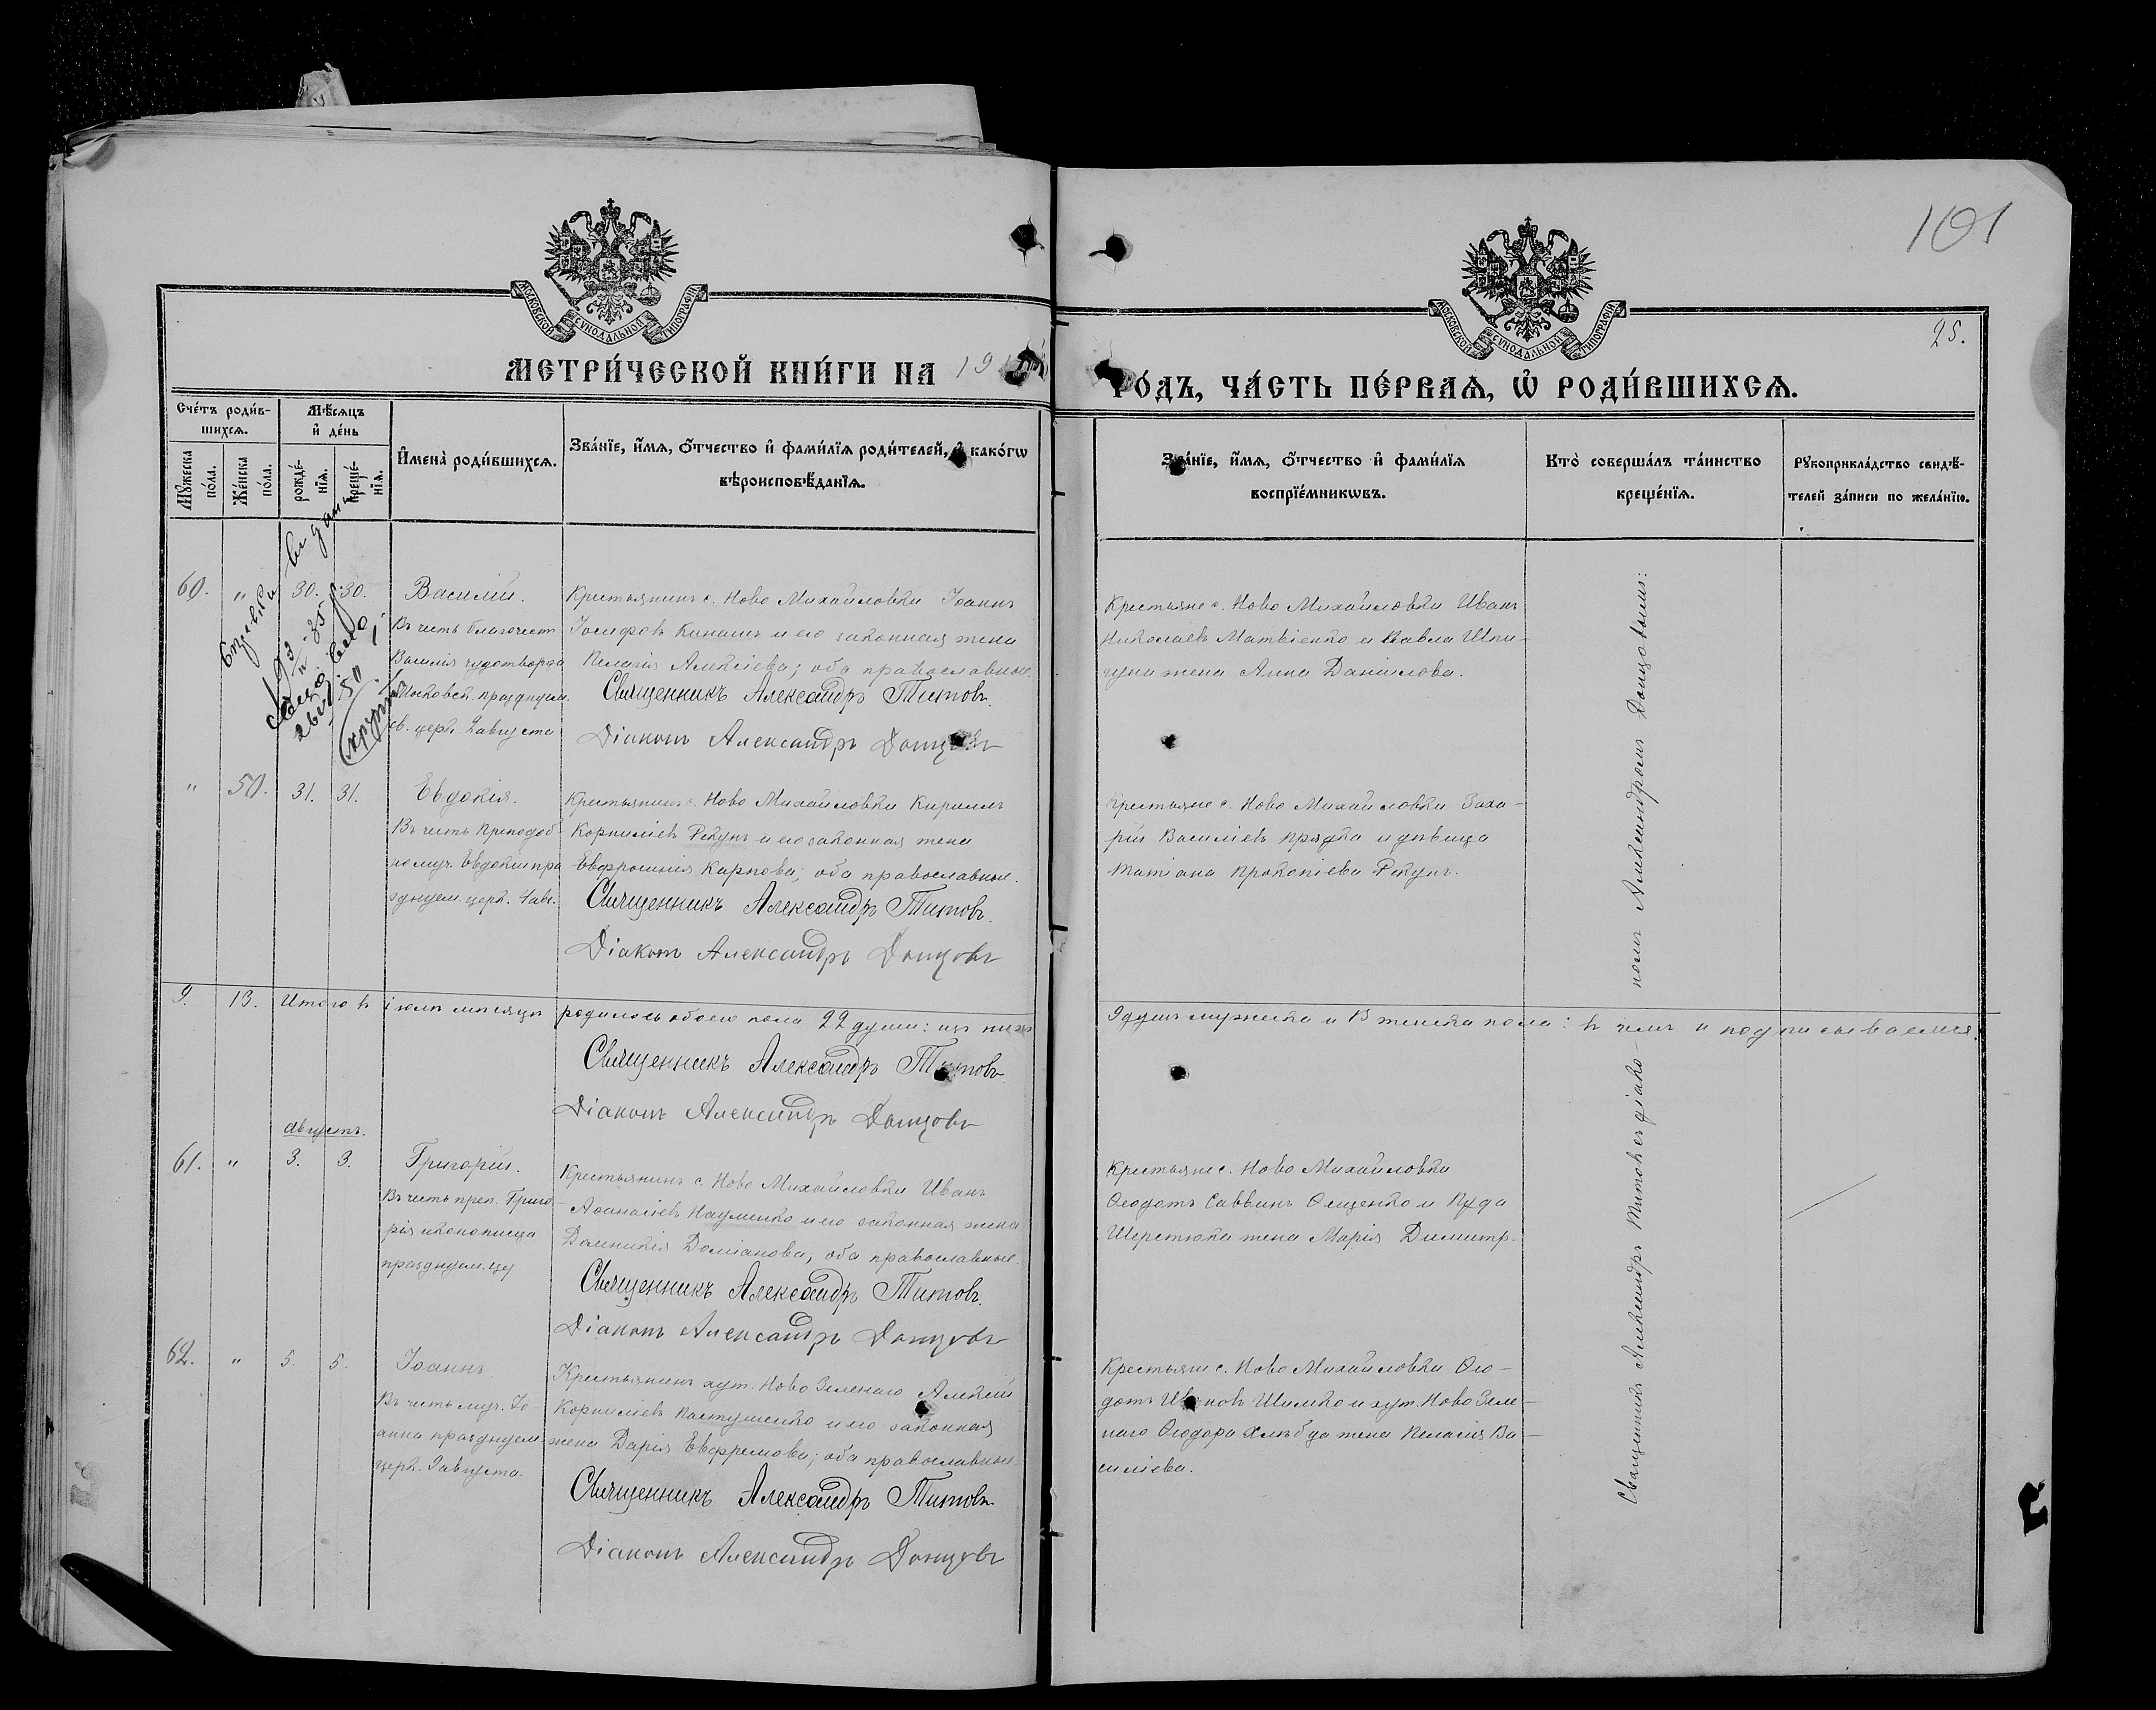 101
МОСКОВСКОЙ СѴНОДАЛЬНОЙ ТИПОГРАФІИ
МОСКОВСКОЙ СѴНОДАЛЬНОЙ ТИПОГРАФІИ
25.
МЕТРИ́ЧЕСКОЙ КНИ́ГИ НА 19
ГО́ДЪ, ЧА́СТЬ ПЕ́РВАѦ, Ѡ҆ РОДИ́ВШИХСѦ.
Сче́тъ роди́в-
шихсѧ.
Мѣ́сѧцъ
и҆ де́нь
Мꙋ́жеска
по́ла.
Же́нска
по́ла.
рожде́-
нїѧ.
креще́-
нїѧ.
И҆мена̀ роди́вшихсѧ.
Зва́нїе, и҆́мѧ, ѻ҆́тчество и҆ фами́лїѧ роди́телей, и҆ како́гѡ
вѣроисповѣ́данїѧ.
Зва́нїе, и҆́мѧ, ѻ҆́тчество и҆ фами́лїѧ
воспрїе́мникѡвъ.
Кто̀ соверша́лъ та́инство
креще́нїѧ.
Рꙋкоприкла́дство свидѣ́-
телей за́писи по жела́нїю.
60. " 30. 30. Василій.
Въ честь благочест.
Василія чудотворца
Московск. празднуем.
св. церк. 2 августа
Крестьянинъ с. Ново Михайловки Іоаннъ
Іосифовъ Кинашъ и его законная жена
Пелагія Алексіева; оба православные.
Священникъ Александръ Титовъ.
Діаконъ Александръ Донцовъ
Крестьяне с. Ново Михайловки Иванъ
Николаевъ Матвіенко и Павла Шпи-
гуна жена Анна Данилова.
" 50. 31. 31. Евдокія.
Въ честь Преподоб
номуч. Евдокіи пра
зднуем. церк. 4 авг.
Крестьянинъ с. Ново Михайловки Кириллъ
Корниліевъ Рекунъ и его законная жена
Евфросинія Карпова; оба православные.
Священникъ Александръ Титовъ.
Діаконъ Александръ Донцовъ
Крестьяне с. Ново Михайловки Заха-
рій Василіевъ Прядка и дѣвица
Татіана Прокопіева Рекунъ.
9. 13. Итого въ іюлѣ мѣсяцѣ родилось обоего пола 22 души: изъ нихъ
9 душъ мужеска и 13 женска пола: въ чемъ и подписываемся.
Священникъ Александръ Титовъ
Діаконъ Александръ Донцовъ
Августъ.
61. " 3. 3. Григорій.
Въ честь преп. Григо-
рія иконописца
празднуем. це
Крестьянинъ с. Ново Михайловки Иванъ
Аѳанасіевъ Науменко и его законная жена
Домникія Доміанова; оба православные.
Священникъ Александръ Титовъ.
Діаконъ Александръ Донцовъ
Крестьяне с. Ново Михайловки
Ѳеодотъ Саввинъ Ощенко и
Шерстюка жена Марія Димитр.
62. " 5. 5. Іоаннъ
Въ честь муч. Іо-
анна празднуем.
церк. 9 августа.
Крестьянинъ хут. Ново Зеленаго Алексій
Корниліевъ Пастушенко и его законная
жена Дарія Евфремова; оба православные.
Священникъ Александръ Титовъ
Діаконъ Александръ Донцовъ
Крестьяне с. Ново Михайловки Ѳео-
дотъ Ивановъ Шимко и хут. Ново Зеле-
наго Ѳеодора Хлѣбца жена Пелагія Ва-
силіева.
Священникъ Александръ Титовъ съ діако-
номъ Александромъ Донцовымъ: